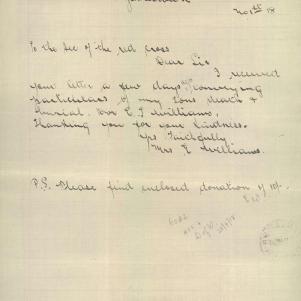 Nov 1st 18
To the Sec of the red cross
Dear Sir
I received
your letter a few days ago conveying
particulars of my Sons death &
burial. Dvr E. J. Williams.
Thanking you for your kindness.
Yrs Faithfully
Mrs E Williams.
P.S. Please find enclosed donation of 10/-